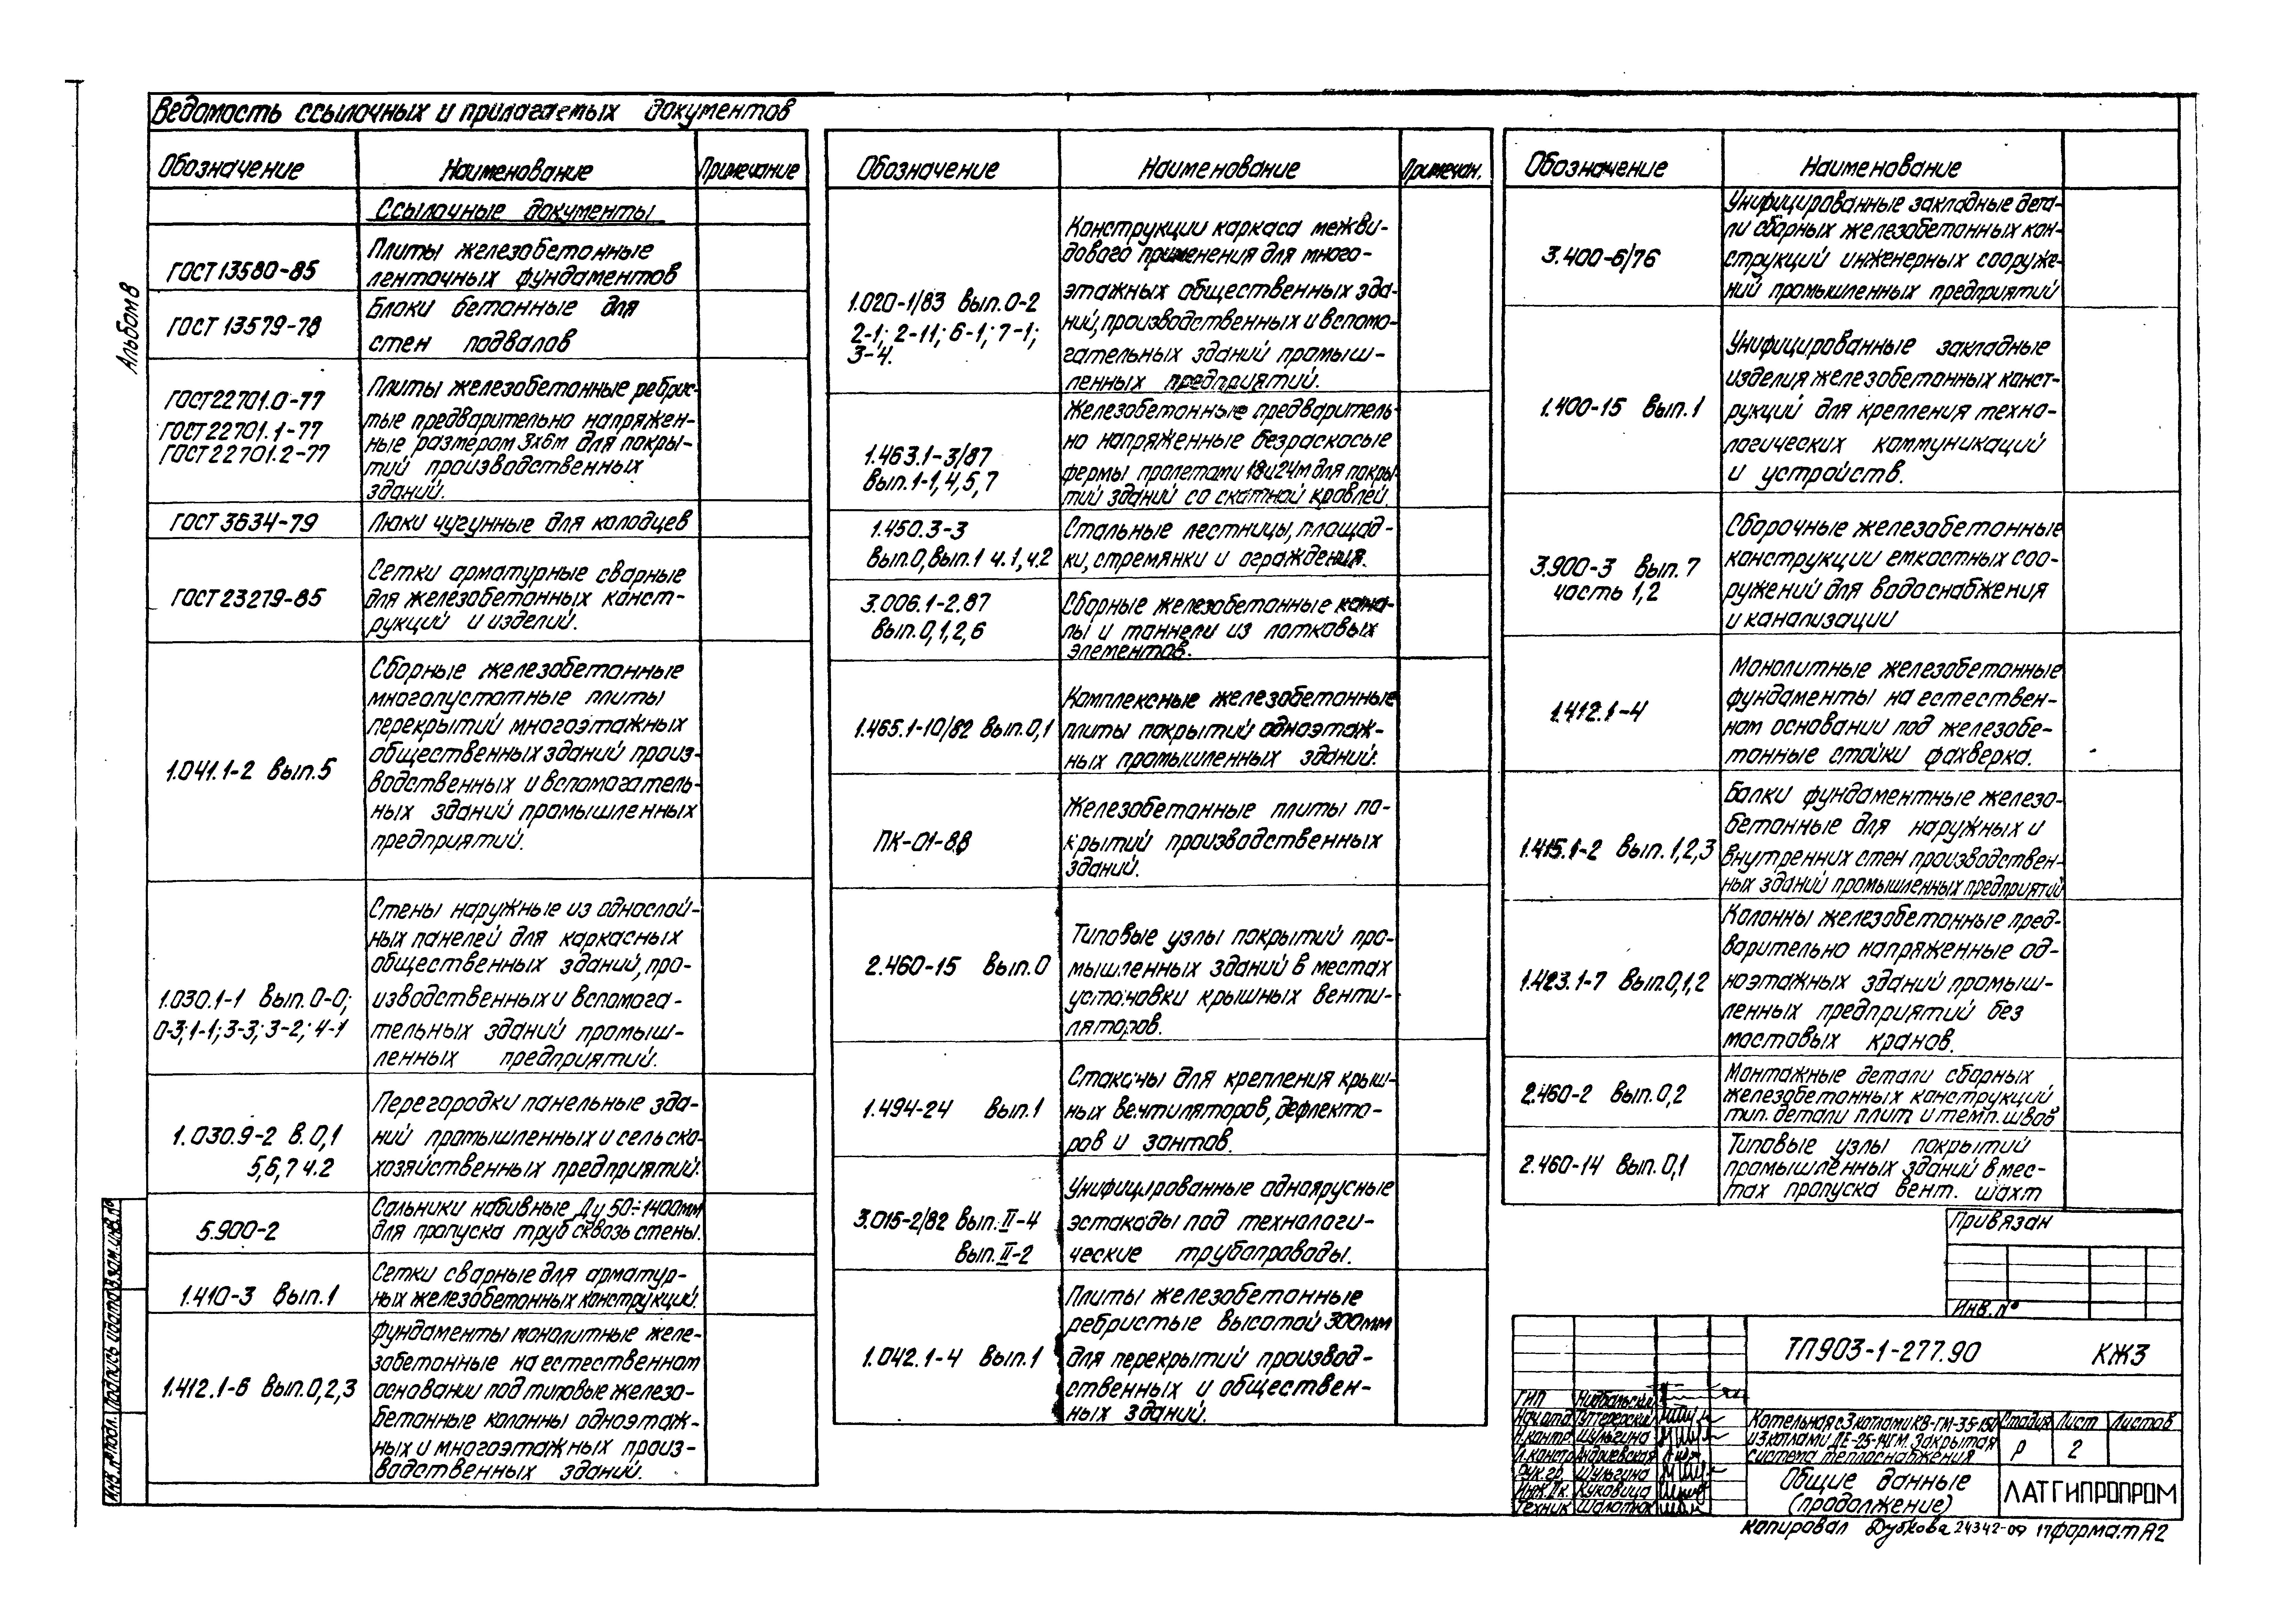 Ведомость ссылочных и прилагаемых документов
Альбом 8
Обозначение Наименование Примечание
Ссылочные документы
ГОСТ 13580-85
Плиты железобетонные
ленточных фундаментов
ГОСТ 13579-78
Блоки бетонные для
стен подвалов
ГОСТ 22701.0-77
ГОСТ 22701.1-77
ГОСТ 22701.2-77
Плиты железобетонные ребрис-
тые предварительно напряжен-
ные размером 3х6м для покры-
тий производственных
зданий.
ГОСТ 3634-79
Люки чугунные для колодцев
ГОСТ 23279-85
Сетки арматурные сварные
для железобетонных конст-
рукций и изделий.
1.041.1-2 Вып.5
Сборные железобетонные
многопустотные плиты
перекрытий многоэтажных
общественных зданий произ-
водственных и вспомогатель-
ных зданий промышленных
предприятий.
1.030.1-1 Вып.0-0;
0-3; 1-1; 3-3; 3-2; 4-1
Стены наружные из однослой-
ных панелей для каркасных
общественных зданий, про-
изводственных и вспомога-
тельных зданий промыш-
ленных предприятий.
1.030.9-2 В.0,1
5,6,7 ч.2
Перегородки панельные зда-
ний промышленных и сельско-
хозяйственных предприятий.
5.900-2
Сальники набивные Ду 50÷1400мм
для пропуска труб сквозь стены.
1.410-3 Вып.1
Сетки сварные для арматур-
ных железобетонных конструкций.
1.412.1-6 Вып.0,2,3
Фундаменты монолитные желе-
зобетонные на естественном
основании под типовые железо-
бетонные колонны одноэтаж-
ных и многоэтажных произ-
водственных зданий.
Обозначение Наименование Примечан.
1.020-1/83 Вып.0-2
2-1; 2-11; 6-1; 7-1;
3-4.
Конструкции каркаса межви-
дового применения для много-
этажных общественных зда-
ний, производственных и вспомо-
гательных зданий промыш-
ленных предприятий.
1.463.1-3/87
Вып.1-1,4,5,7
Железобетонные предваритель-
но напряженные безраскосые
фермы пролетами 18и24м для покры-
тий зданий со скатной кровлей.
1.450.3-3
Вып.0, Вып.1 ч.1, ч.2
Стальные лестницы, площад-
ки, стремянки и ограждения.
3.006.1-2.87
Вып.0,1,2,6
Сборные железобетонные кана-
лы и тоннели из лотковых
элементов.
1.465.1-10/82 Вып.0,1
Комплексные железобетонные
плиты покрытий одноэтаж-
ных промышленных зданий.
ПК-01-88
Железобетонные плиты по-
крытий производственных
зданий.
2.460-15 Вып.0
Типовые узлы покрытий про-
мышленных зданий в местах
установки крышных венти-
ляторов.
1.494-24 Вып.1
Стаканы для крепления крыш-
ных вентиляторов, дефлекто-
ров и зонтов.
3.015-2/82 Вып.II-4
Вып.II-2
Унифицированные одноярусные
эстакады под технологи-
ческие трубопроводы.
1.042.1-4 Вып.1
Плиты железобетонные
ребристые высотой 300мм
для перекрытий производ-
ственных и обществен-
ных зданий.
Обозначение Наименование
3.400-6/76
Унифицированные закладные дета-
ли сборных железобетонных кон-
струкций инженерных сооруже-
ний промышленных предприятий
1.400-15 Вып.1
Унифицированные закладные
изделия железобетонных конст-
рукций для крепления техно-
логических коммуникаций
и устройств.
3.900-3 Вып.7
часть 1,2
Сборочные железобетонные
конструкции емкостных соо-
ружений для водоснабжения
и канализации
1.412.1-4
Монолитные железобетонные
фундаменты на естествен-
ном основании под железобе-
тонные стойки фахверка.
1.415.1-2 Вып.1,2,3
Балки фундаментные железо-
бетонные для наружных и
внутренних стен производствен-
ных зданий промышленных предприятий
1.423.1-7 Вып.0,1,2
Колонны железобетонные пред-
варительно напряженные од-
ноэтажных зданий промыш-
ленных предприятий без
мостовых кранов.
2.460-2 Вып.0,2
Монтажные детали сборных
железобетонных конструкций
тип. детали плит и темп. швов
2.460-14 Вып.0,1
Типовые узлы покрытий
промышленных зданий в мес-
тах пропуска вент. шахт
Привязан
Инв. №
ТП 903-1-277.90 КЖ3
ГИП
Нач.отд
Н.контр. Шульгина
Гл.констр Андриевская
Рук.гр. Шульгина
Инж.IIк. Куковица
Техник Шалотюк
Котельная с 3 котлами КВ-ГМ-35-150
и 3 котлами ДЕ-25-14ГМ. Закрытая
система теплоснабжения
Стадия Лист Листов
Р 2
Общие данные
(продолжение)
ЛАТГИПРОПРОМ
Инв.№ подл. Подпись и дата Взам.инв.№
Копировал Дубкова 24342-09 17 формат А2